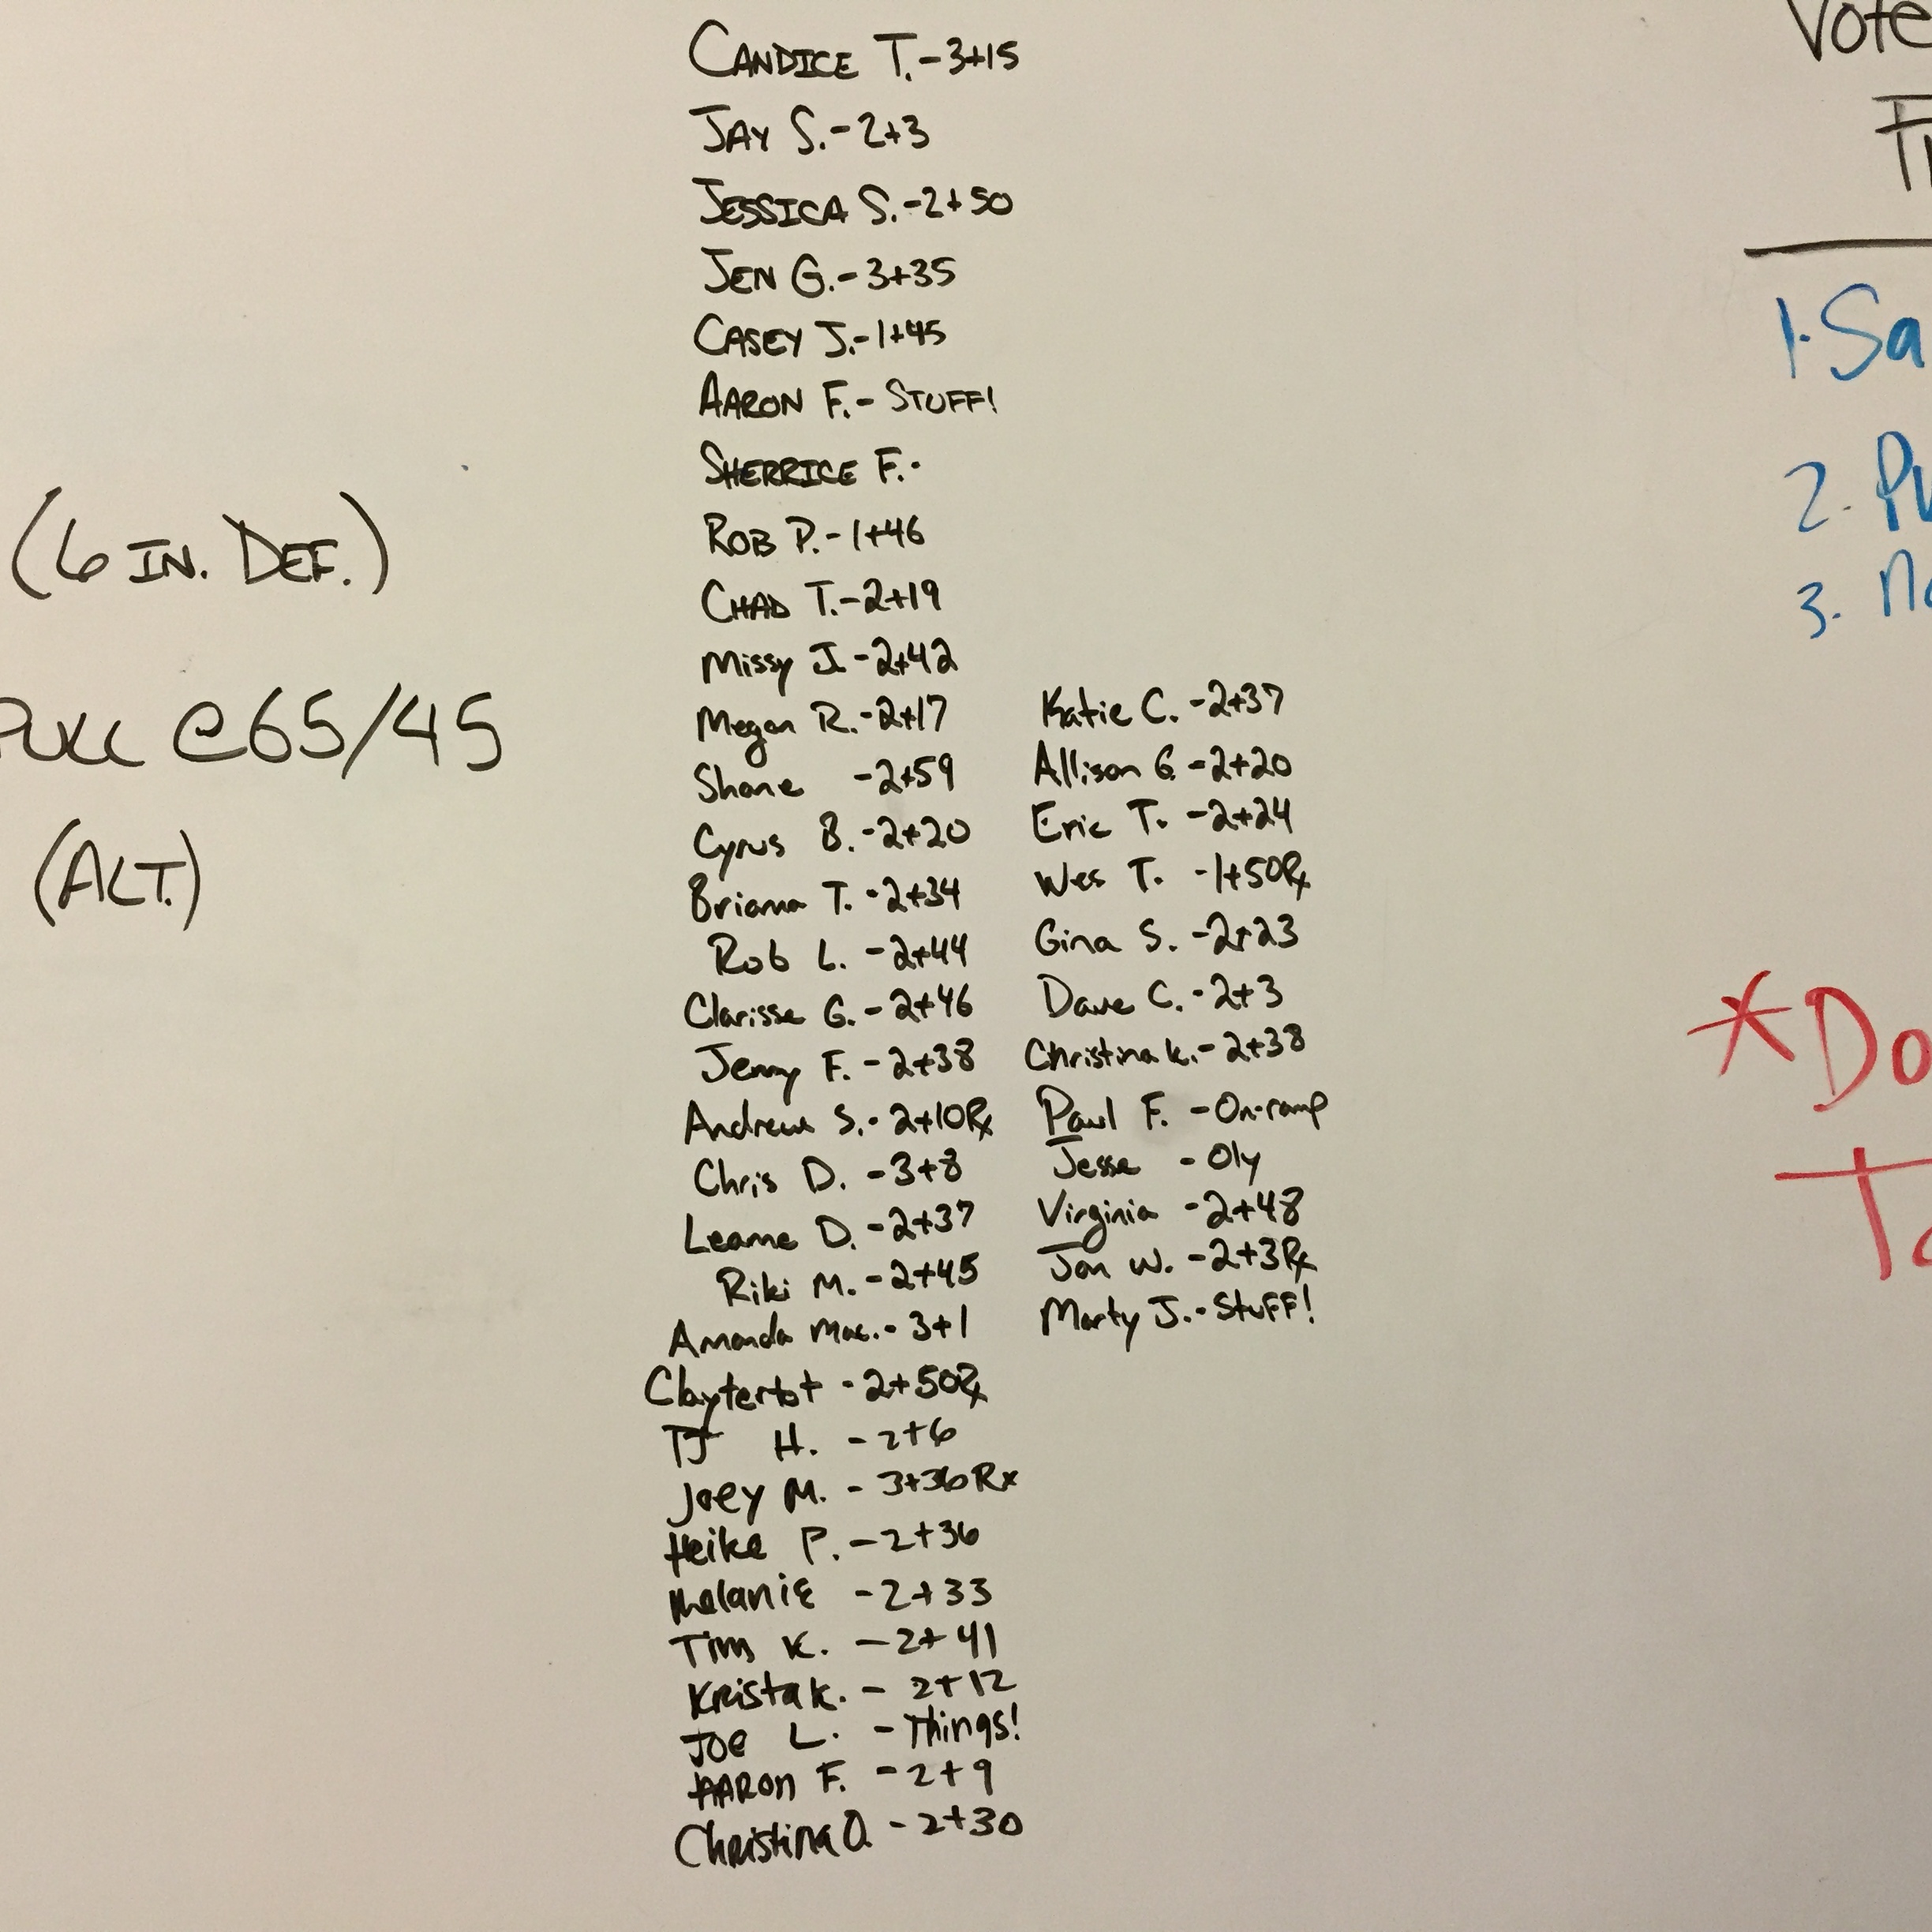 (6 IN. DEF.)
PULL @65/45
(ALT.)
CANDICE T.-3+15
JAY S.-2+3
JESSICA S.-2+50
JEN G.-3+35
CASEY J.-1+45
AARON F.- STUFF!
SHERRICE F.-
ROB P.-1+46
CHAD T.-2+19
Missy J.-2+42
Megan R.-2+17
Shane -2+59
Cyrus B.-2+20
Brianna T.-2+34
Rob L. -2+44
Clarisse G.-2+46
Jenny F.-2+38
Andrew S.-2+10Rx
Chris D. -3+8
Leanne D.-2+37
Riki M.-2+45
Amanda Mac.-3+1
Claytertot -2+50Rx
TJ H. -2+6
Joey M. - 3+36Rx
Heike P. -2+36
Melanie -2+33
Tim K. -2+41
Krista K. - 2+12
Joe L. -Things!
AARON F. -2+9
Christina O. -2+30
Katie C. -2+37
Allison G -2+20
Eric T. -2+24
Wes T. -1+50Rx
Gina S. -2+23
Dave C. -2+3
Christina K.-2+38
Paul F. -On-ramp
Jesse - Oly
Virginia -2+48
Jon W. -2+3Rx
Marty J.-Stuff!
Vote
1. Sa
2. Pu
3. No
*Do
To